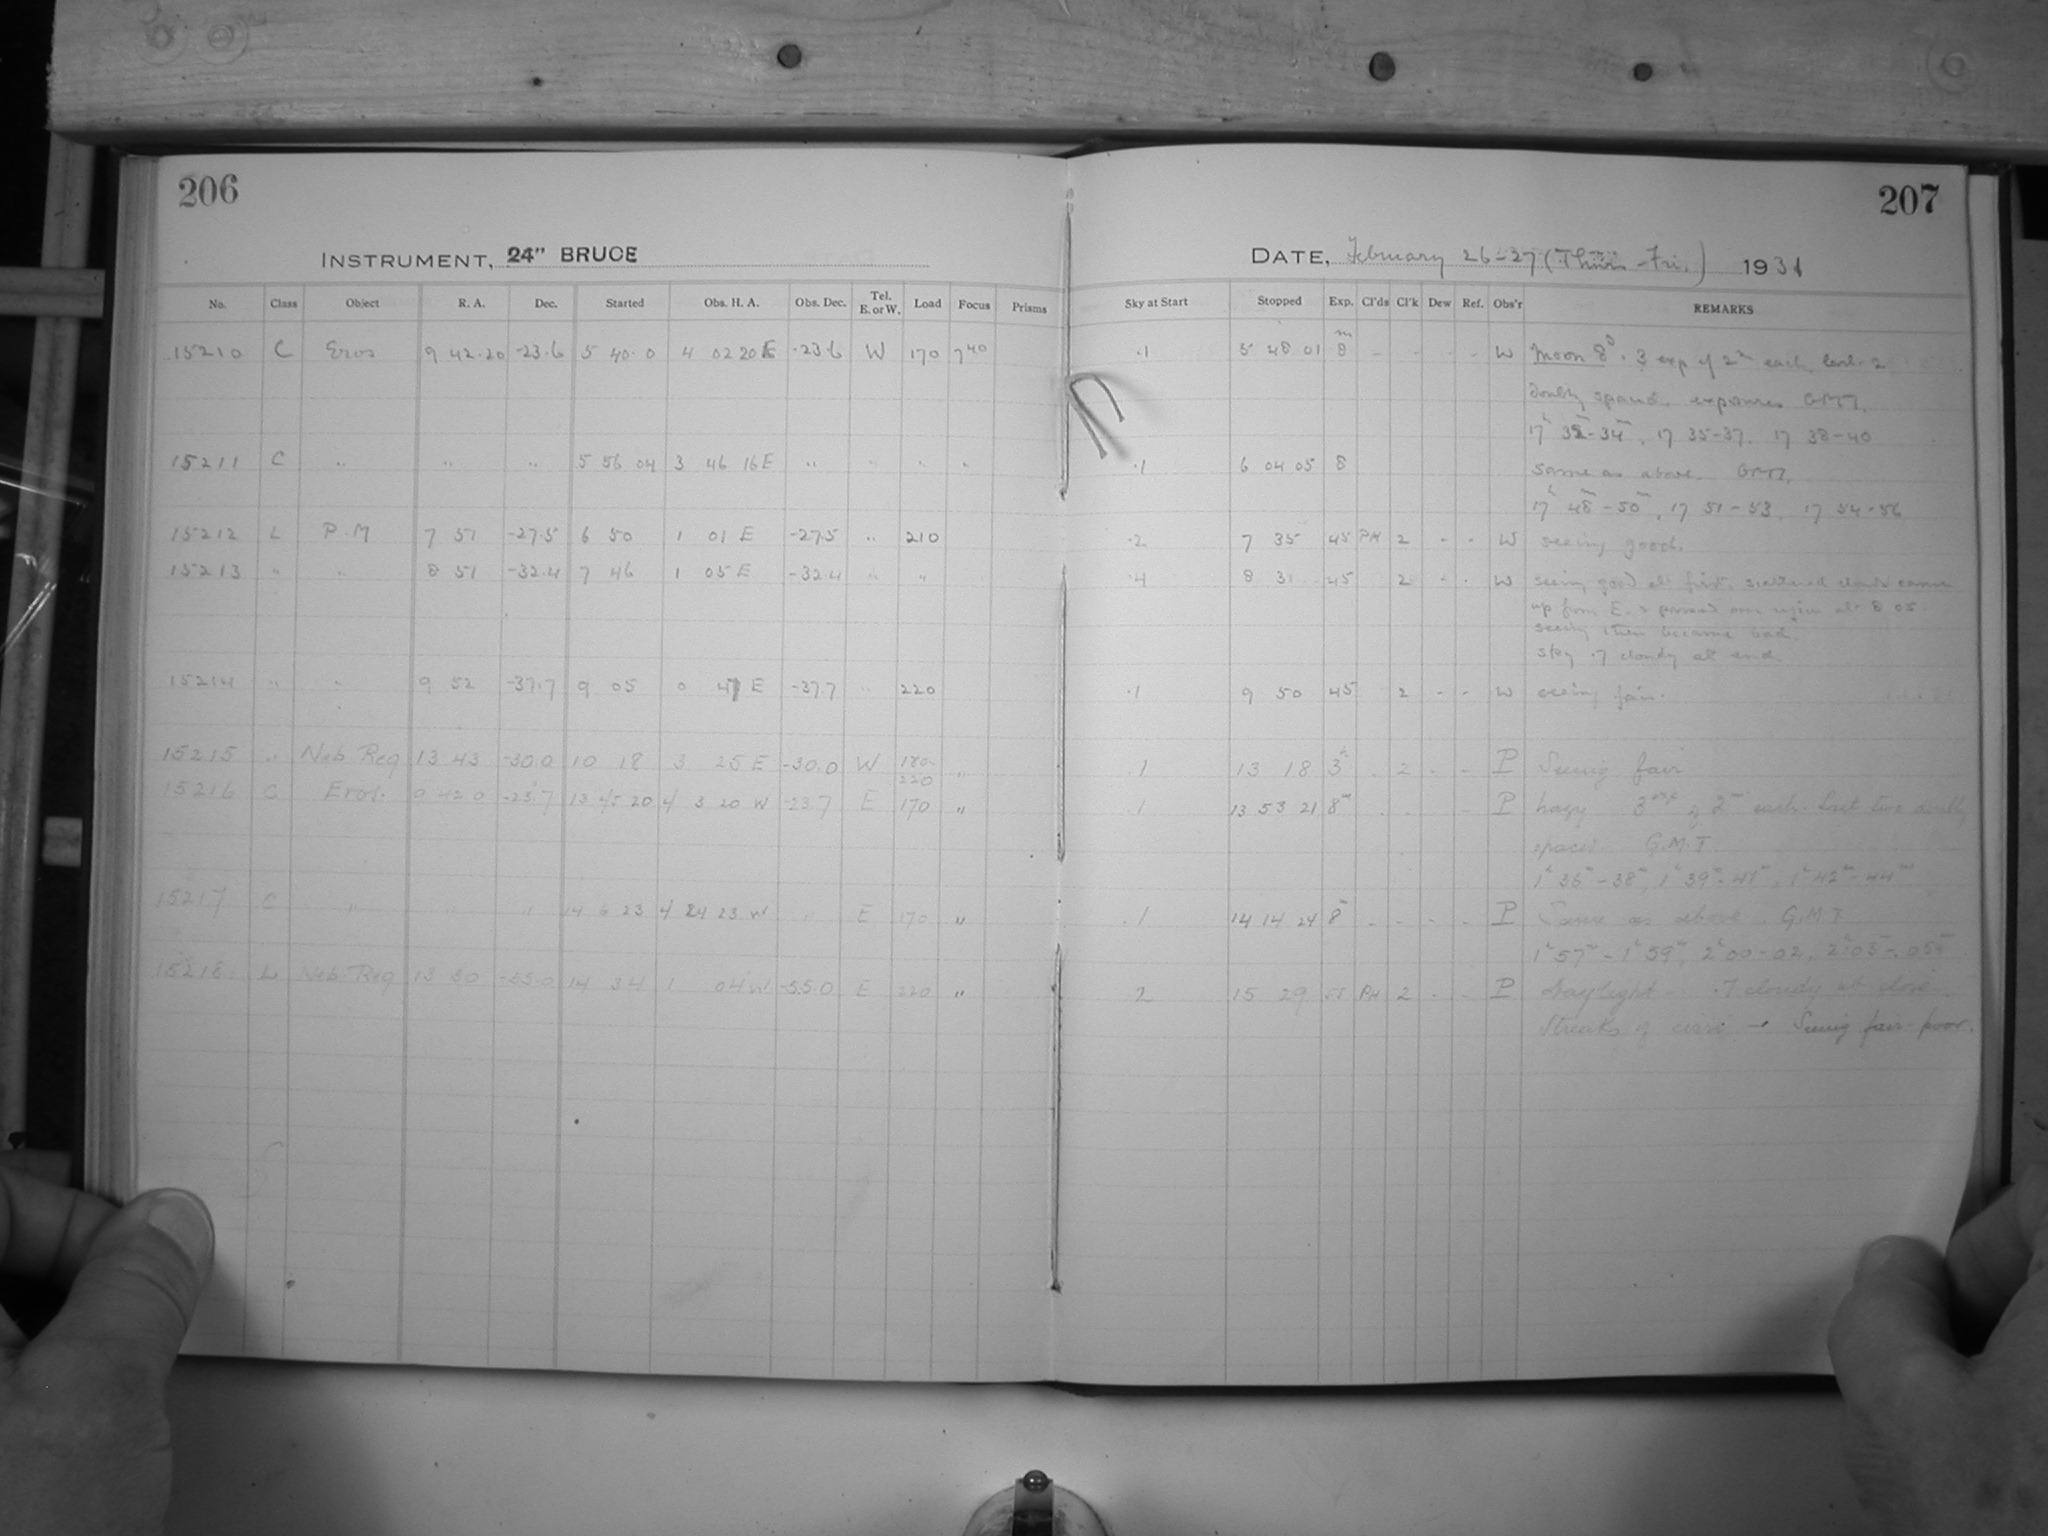 206
207
INSTRUMENT, 24" BRUCE
DATE, February 26-27 (Thurs-Fri.) 1931
No. Class Object R. A. Dec. Started Obs. H. A. Obs. Dec. Tel. E. or W. Load Focus Prisms Sky at Start Stopped Exp. Cl'ds Cl'k Dew Ref. Obs'r REMARKS
15210 C Eros 9 42.20 -23.6 5 40.0 4 02 20 E -23.6 W 170 7 40 .1 5 48 01 8 m - - - - W Moon 8 . 3 exp of 2m each,
doubly spaced. exposures GMT.
17h 32-34m, 17 35-37, 17 38-40
15211 C " " " 5 56 04 3 46 16 E " " " " .1 6 04 05 8 same as above. GMT.
17h 48m-50m, 17 51-53, 17 54-56
15212 L P.M 7 51 -27.5 6 50 1 01 E -27.5 " 210 .2 7 35 45 PH 2 - - W seeing good.
15213 " " 8 51 -32.4 7 46 1 05 E -32.4 " " .4 8 31 45 2 - - W seeing good at first. scattered clouds came
up from E. & passed over region at 8 05.
seeing then became bad.
sky .7 cloudy at end.
15214 " " 9 52 -37.7 9 05 0 47 E -37.7 " 220 .1 9 50 45 2 - - W seeing fair.
15215 " Neb Reg 13 43 -30.0 10 18 3 25 E -30.0 W 180-220 " .1 13 18 3h . 2 - - P Seeing fair
15216 C Eros. 9 42 0 -23.7 13 45 20 4 3 20 W -23.7 E 170 " .1 13 53 21 8m . . . - P hazy 3 exp of 2m each. Last two doubly
spaced G.M.T
1h 36m-38m, 1h 39m-41m, 1h 42m-44m
15217 C " " " 14 6 23 4 24 23 W " E 170 " .1 14 14 24 8m - - - - P Same as above. G.M.T
1h 57m-1h 59m, 2h 00-02, 2h 03-05m
15218 L Neb. Reg 13 30 -55.0 14 34 1 04 W -55.0 E 220 " 2 15 29 55 PH 2 - - P Daylight - .7 cloudy at close.
Streaks of cirri - Seeing fair-poor.